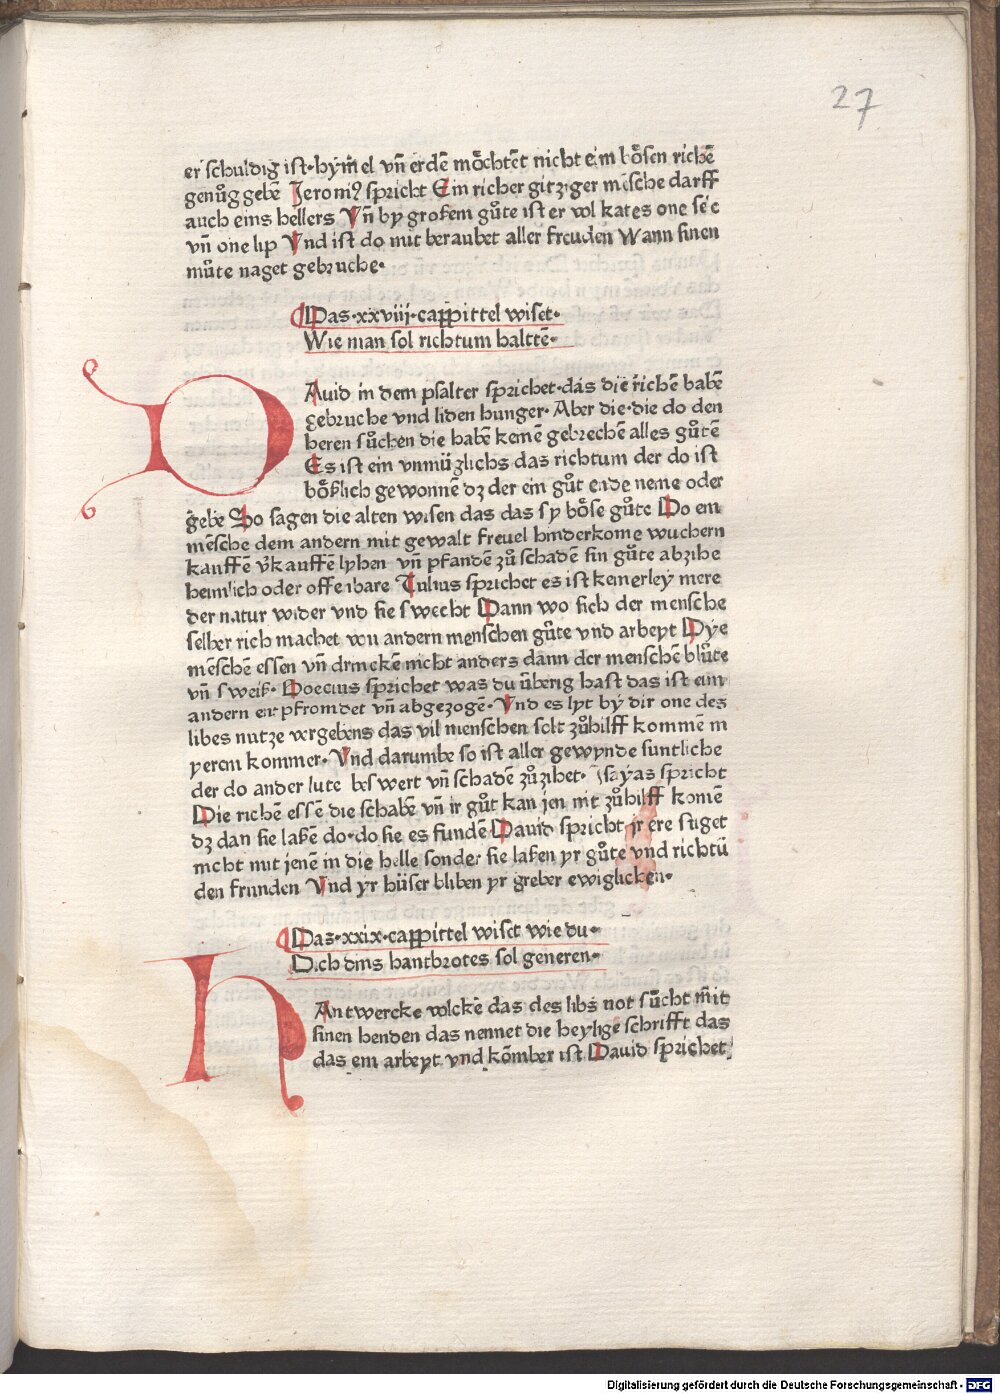 27
er schuldig ist·hym̃el vñ erdē moͤchtēt nicht eim boͤsen richē
genuͦg gebē Jeronimꝰ spricht Ein richer gitziger mēsche darff
auch eins hellers Vñ by grossem guͦte ist er wol kates one sele
vñ one lip Vnd ist do mit beraubet aller freuden Wann sinen
muͦte naget gebruche·
Das·xxviij·cappittel wiset·
Wie man sol richtum haltē·
DAuid in dem psalter sprichet·das die richē habē
gebruche vnd liden hunger·Aber die·die do den
heren suͦchen die habē kenē gebrechē alles guͦtē
Es ist ein vnmüglichs das richtum der do ist
boͤßlich gewonnē dz der ein guͦt ende neme oder
gebe So sagen die alten wisen das das sy boͤse guͦte Do ein
mēsche dem andern mit gewalt freuel hinderkome wuchern
kauffē v̄kauffē lyhen vñ pfandē zuͦ schadē sin guͦte abzihe
heimlich oder offenbare Tulius sprichet es ist keinerley mere
der natur wider vnd sie swecht Dann wo sich der mensche
selber rich machet von andern menschen guͦte vnd arbeyt Dye
mēschē essen vñ drinckē nicht anders dann der menschē bluͦte
vñ sweiß·Boecius sprichet was du überig hast das ist eim
andern enpfromdet vñ abgezogē·Vnd es lyt by dir one des
libes nutze vergebens das vil menschen solt zuͦhilff kommē in
yerem kommer·Vnd darumbe so ist aller gewynde suntliche
der do ander lute beswert vñ schadē zuͦzihet·Jsayas spricht
Die richē essē die schabē vñ ir guͦt kan jen nit zuͦhilff komē
dz dan sie laßē do·do sie es fundē Dauid spricht jr ere stiget
nicht mit jenē in die helle sonder sie laßen yr guͦte vnd richtū
den frunden Vnd yr hüser bliben yr greber ewiglichen·
Das·xxix·cappittel wiset wie du·
Dich dins hantbrotes sol generen·
HAntwercke wolckē das des libs not suͦcht mit
sinen henden das nennet die heylige schrifft das
das ein arbeyt vnd komber ist Dauid sprichet
Digitalisierung gefördert durch die Deutsche Forschungsgemeinschaft - DFG